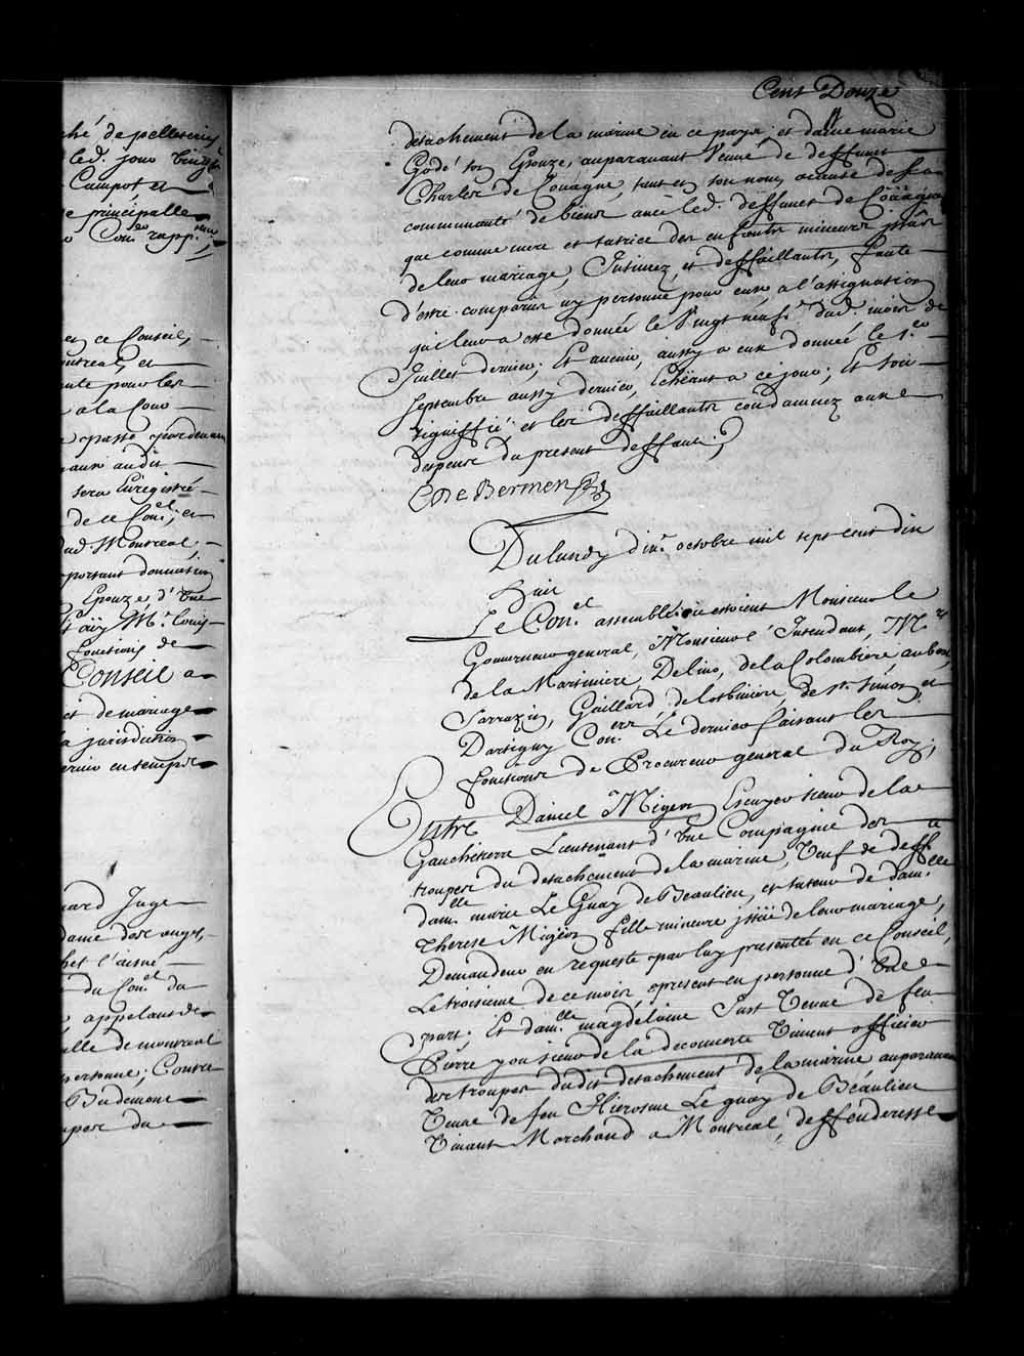 ché de pelleteries
led. jour vingt
Campot, et
e principalle
Con.er rapp.
en ce Conseil,
montreal, et
ante pour les
a la Cour
passé pardevant
aux audit
sera Enregistré
de ce Con.el; et
dud. Montreal,
portant donnation
Epouze d'une
M.e Louis
fonctions de
Conseil a
et de mariage
a jurisdiction
ernier ensemble
uard Juge
dame desc anges,
het l'aisné
du Con.el du
appelans de
ille de montreal
personne; Contre
Budemone
apos du
Cent Douze
detachement de la marine en ce pays; et dame marie
Godé son Epouze, auparavant Veuve de deffunt
Charles de Coüagne, tant en son nom, acause de sa
communauté de biens avec led. deffunct de Coüagne
que comme mere et tutrice des enfants mineurs issus
de leur mariage, Intimez, et deffaillants, faute
d'estre comparus ny personne pour eux a l'assignation
qui leur a esté donnée le Vingt neuf.e dud. mois de
Juillet dernier; Et avenir, aussy a eux donné le 1.er
septembre aussy dernier, Echëant a ce jour; Et soit
signiffié; et les deffaillants condamnez aux
depens du present deffaut;
C De Bermen
Du lundy dix.e octobre mil sept cent dix
huit
Le Con.el assemblé ou estoient Monsieur le
Gouverneur general, Monsieur l'Intendant, M.rs
de la Martiniere, Delino, de la Colombiere, aubert,
Sarrazin, Gaillard, de lotbiniere, de st. Simon, et
Dartigny Con.ers Le dernier faisant les
fonctions de Procureur general du Roy;
Entre Daniel Migeon Escuyer sieur de la
Gauchetiere Lieutenant d'une Compagnie des
troupes du detachement de la marine, Veuf de deff.te
dam.elle marie Le Guay de Beaulieu, et tuteur de dam.elle
Therese Migëon fille mineure issüe de leur mariage,
Demandeur en requeste par luy presentée en ce Conseil,
Le troisieme de ce mois, present en personne d'une
part; Et dam.elle magdelaine Just Veuve de feu
Pierre you sieur de la decouverte Vivant officier
des troupes dudit detachement de la marine auparavant
Veuve de feu Hierosme Le guay de Beaulieu
Vivant Marchand a Montreal, deffenderesse